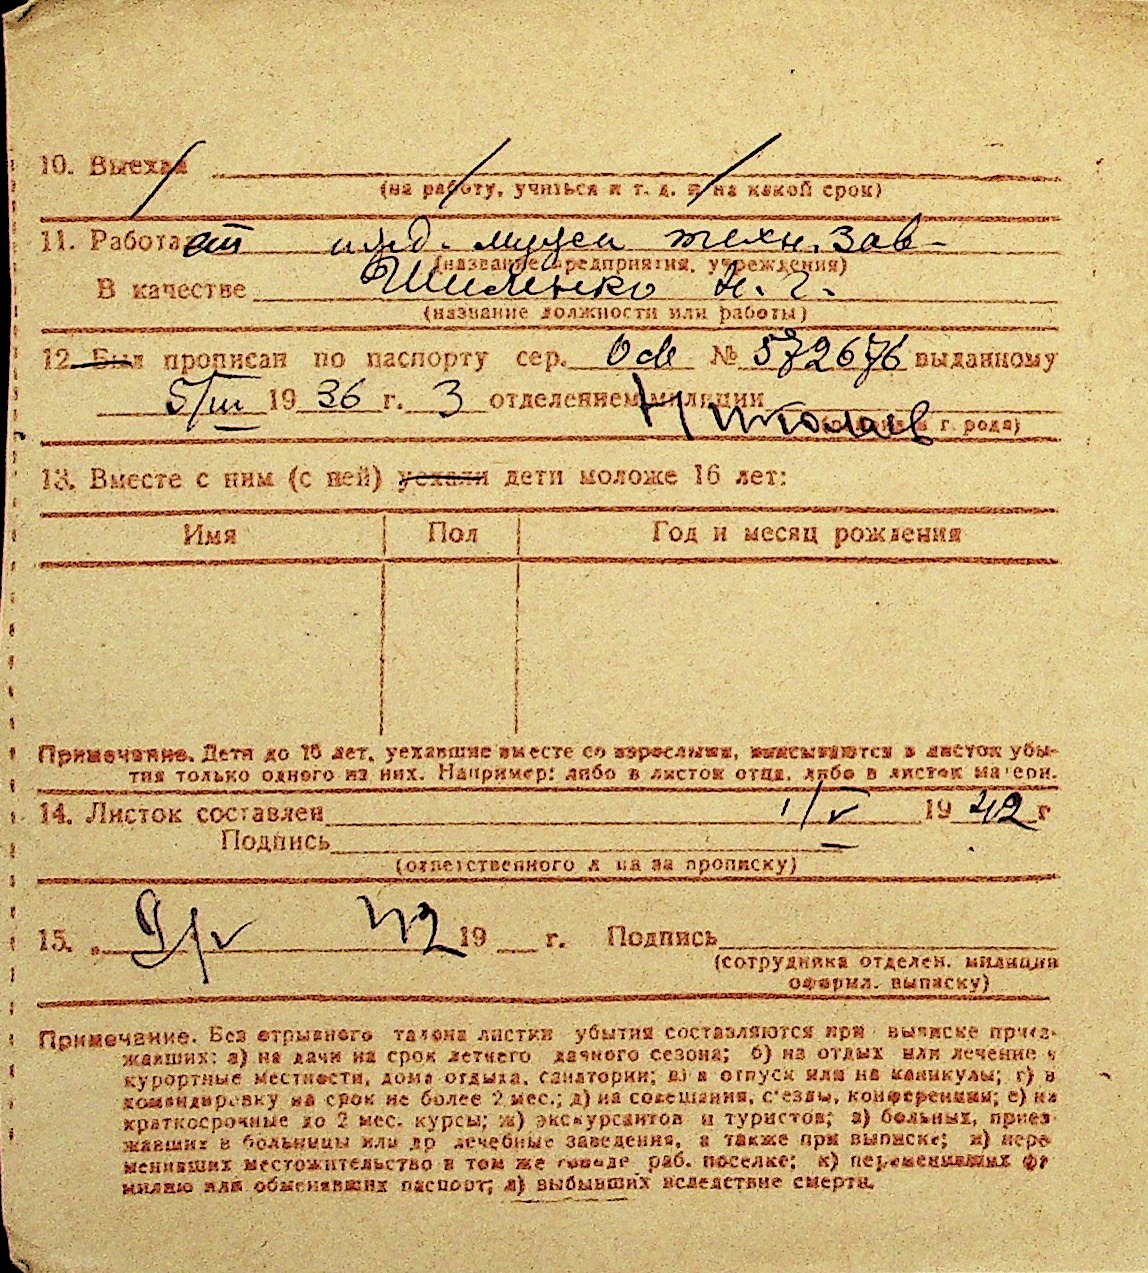 10. Выехал
(на работу, учиться и т. д. и на какой срок)
11. Работа муз техн. зав-
(название предприятия, учреждения)
В качестве Шиленко Н. Г.
(название должности или работы)
12. Был прописан по паспорту сер. № 572676 выданному
5/III 1936 г. 3 отделением милиции
г. рода)
13. Вместе с ним (с ней) уехали дети моложе 16 лет:
Имя Пол Год и месяц рождения
Примечание. Дети до 16 лет, уехавшие вместе со взрослыми, вписываются в листок убы-
тия только одного из них. Например: либо в листок отца, либо в листок матери.
14. Листок составлен 1/V 1942 г
Подпись
(ответственного за прописку)
15. „ 9/V 42 19 г. Подпись
(сотрудника отделен. милиции
оформл. выписку)
Примечание. Без отрывного талона листки убытия составляются при выписке приез-
жавших: а) на дачи на срок летнего дачного сезона; б) на отдых или лечение в
курортные местности, дома отдыха, санатории; в) в отпуск или на каникулы; г) в
командировку на срок не более 2 мес.; д) на совещания, с'езды, конференции; е) на
краткосрочные до 2 мес. курсы; ж) экскурсантов и туристов; з) больных, приез-
жавших в больницы или др лечебные заведения, а также при выписке; и) пере
менивших местожительство в том же городе раб. поселке; к) переменивших фа
милию или обменявших паспорт; л) выбывших вследствие смерти.